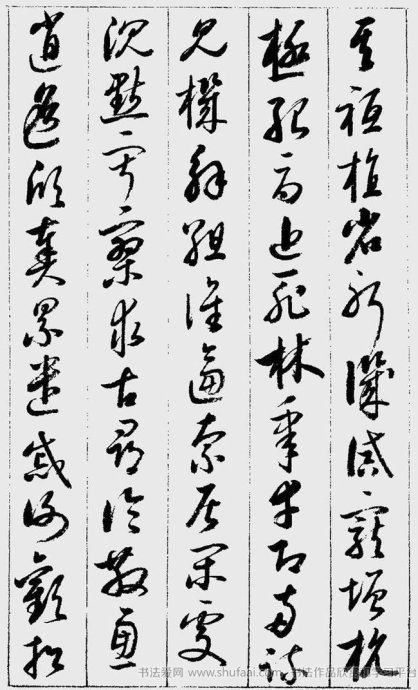 其祗植省躬譏誡寵增抗
極殆辱近恥林皋幸即兩疏
見機解組誰逼索居閑處
沉默寂寥求古尋論散慮
逍遙欣奏累遣戚謝歡招
书法爱网 www.shufaai.com 书法作品欣赏和学习平台